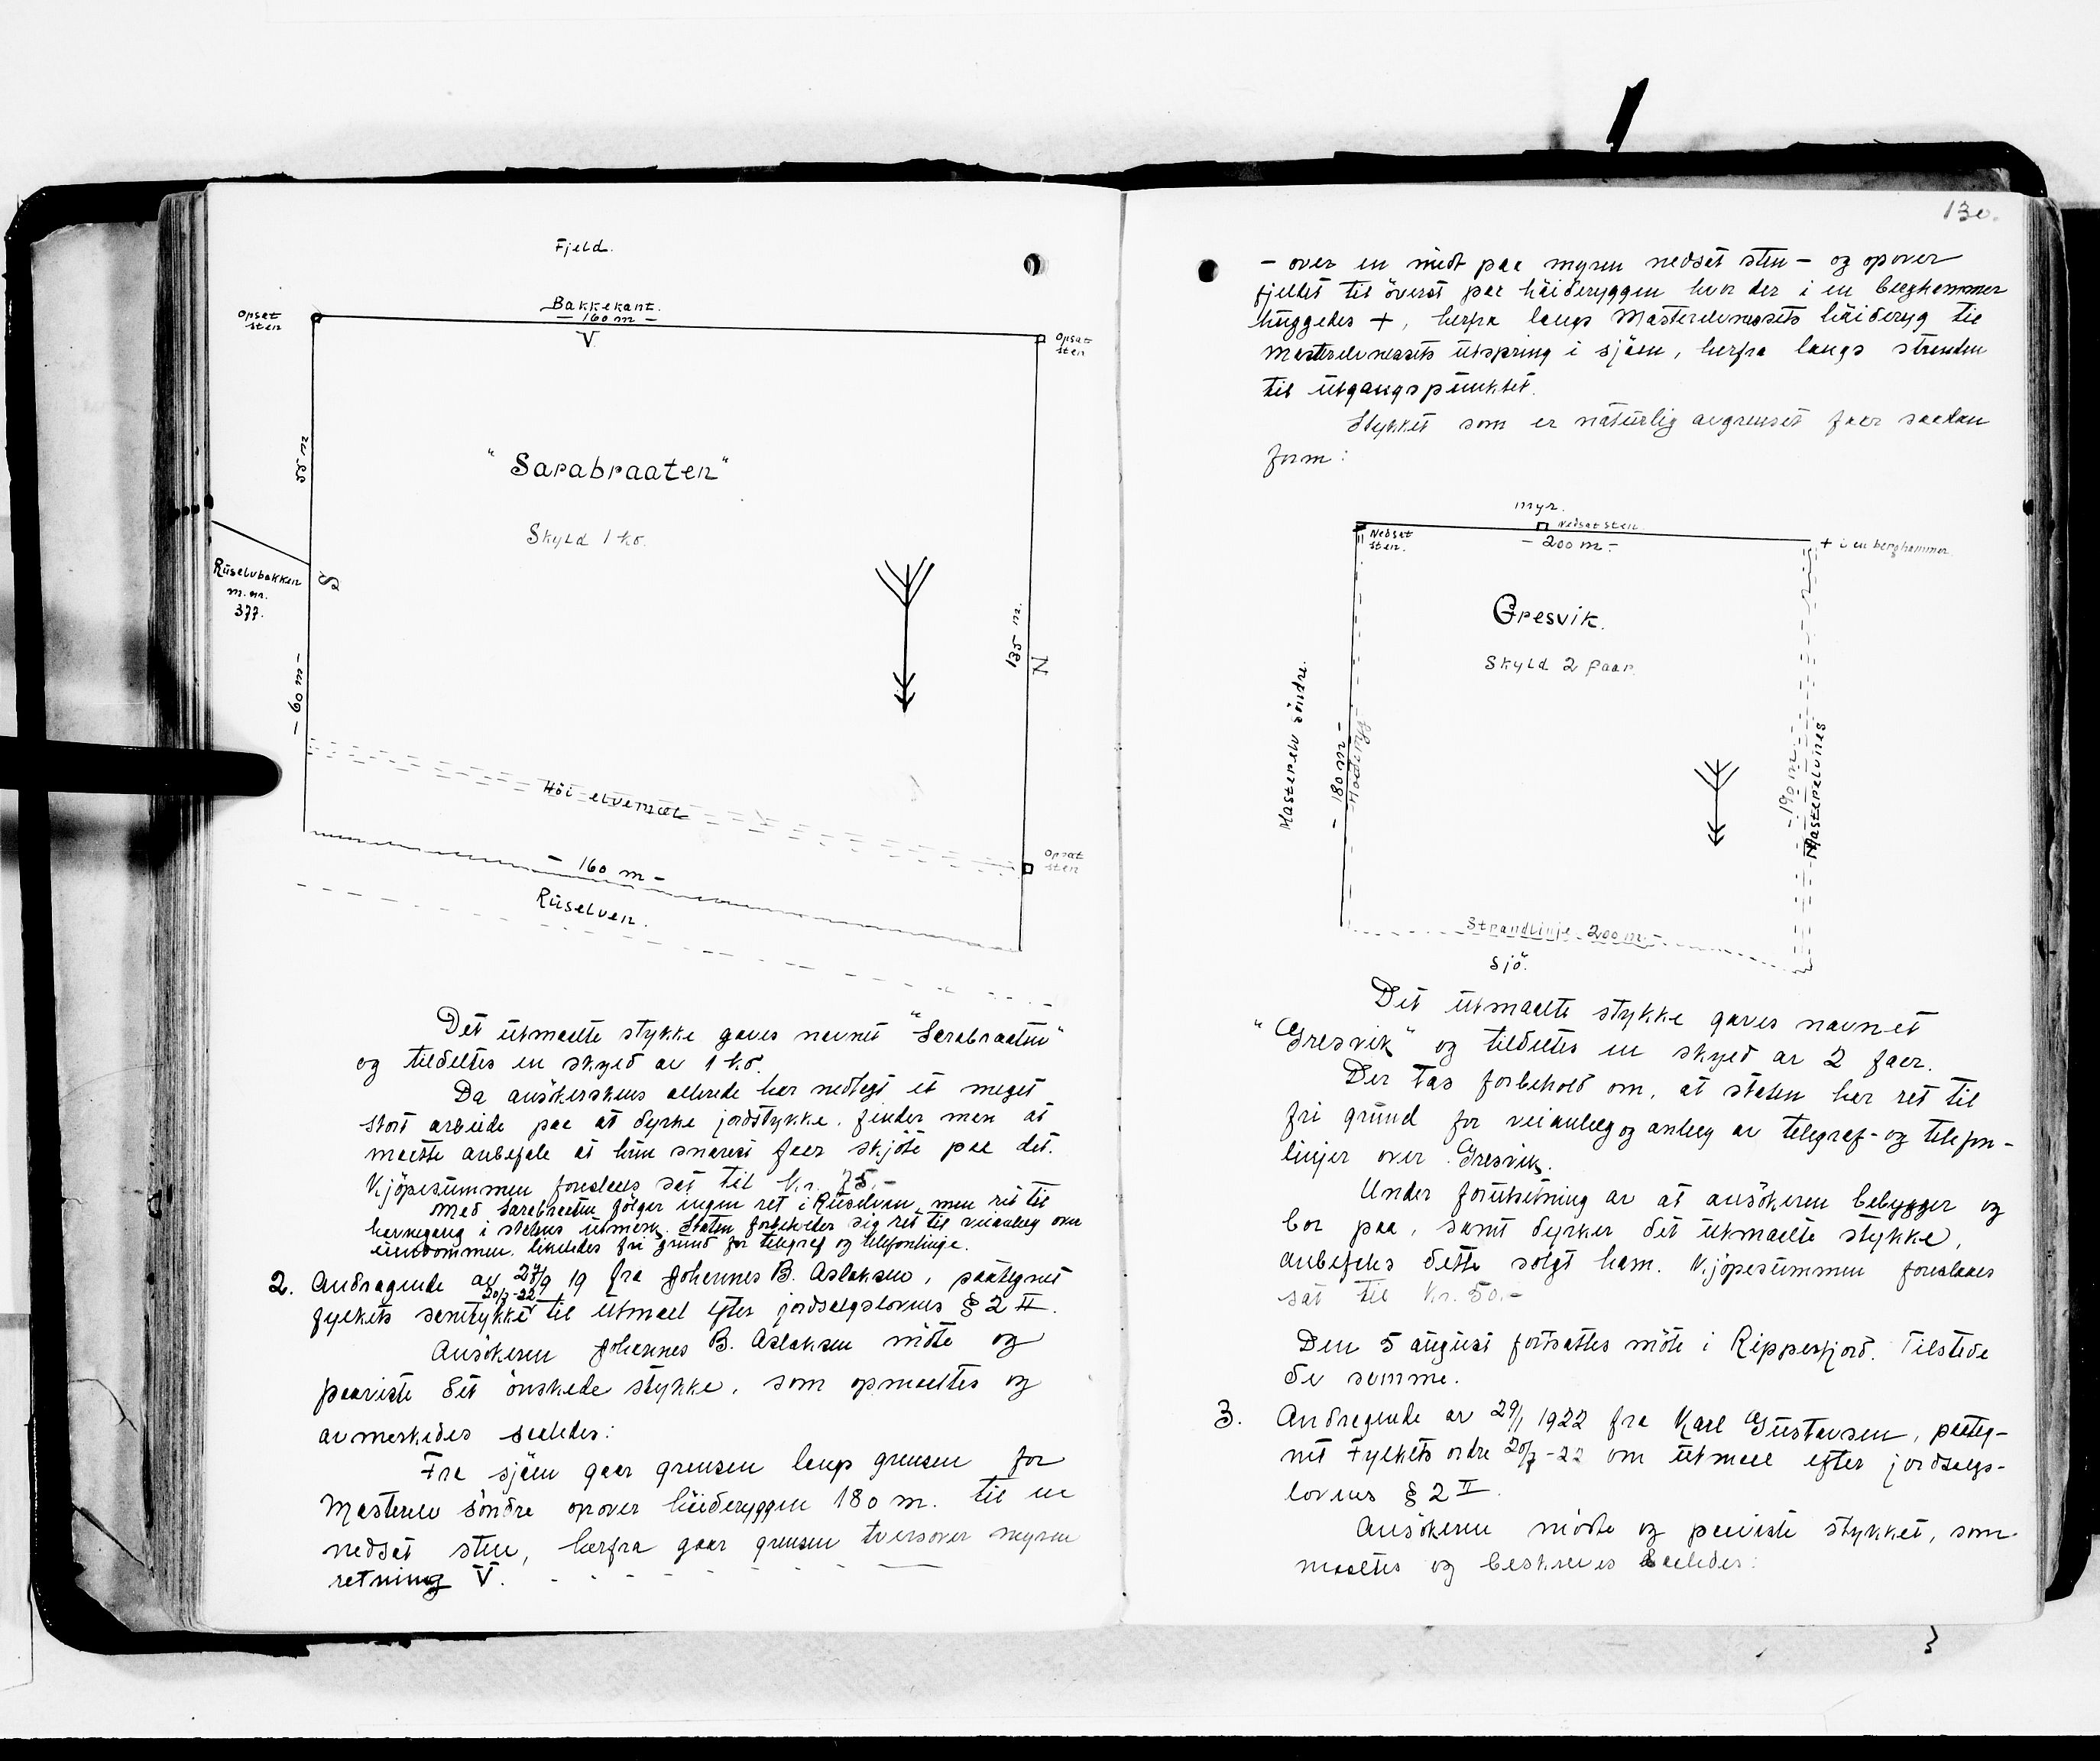 Fjeld.
Bakkekant.
– 160 m –
V
Opsat
sten
Opsat
sten
55 m
"Sarabraaten"
Skyld 1 hö.
Rüselvbakken
m. nr.
377.
S
– 60 m –
135 m.
N
Höi elvemæl
Opsat
sten
– 160 m –
Rüselven.
Det ütmaalte stykke gaves navnet "Sarabraaten"
og tildeltes en skyld av 1 hö.
Da ansökerskens allerede har nedlagt et meget
stort arbeide paa at dyrke jordstykke, finder man at
maatte anbefale at hün snarest faar skjöte paa det.
Kjöpesümmen foreslaaes sat til kr. 75.–
Med Sarabraaten fölger ingen ret i Rüselven, men ret til
havnegang i statens ütmark. Staten forbeholder sig ret til veianlæg over
eiendommen, likeledes fri gründ for telegraf og telefonlinje.
2. Andragende av 24/9 19 fra Johannes B. Aslaksen, paategnet
20/7-22
fylkets samtykke til ütmaal efter jordsalgslovens § 2 II.
Ansökeren Johannes B. Aslaksen mötte og
paaviste det önskede stykke, som opmaaltes og
avmerkedes saaledes:
Fra sjöen gaar grensen langs grensen for
Masterelv söndre opover höideryggen 180 m. til en
nedsat sten, herfra gaar grensen tversover myren
retning V.
130.
– over en midt paa myren nedsat sten – og opover
fjeldet til överst paa höideryggen hvor der i en berghammer
hüggedes +, herfra langs Masterelvnessets höideryg til
Masterelvnessets ütspring i sjöen, herfra langs stranden
til ütgangspünktet.
Stykket som er natürlig avgrenset faar saadan
form:
myr.
Nedsat sten.
Nedsat
sten.
– 200 m –
+ i en berghammer.
Gresvik.
Skyld 2 øer.
Masterelv söndre.
– 180 m –
Höderygg
– 190 m –
Masterelvnes
Strandlinje 200 m.
Sjö.
Det ütmaalte stykke gaves navnet
"Gresvik" og tildeltes en skyld av 2 øer.
Der tas forbehold om, at staten har ret til
fri gründ for veianlæg og anlæg av telegraf- og telefon-
linjer over Gresvik.
Under forütsetning av at ansökeren bebygger og
bor paa, samt dyrker det ütmaalte stykke,
anbefales dette solgt ham. Kjöpesümmen foreslaaes
sat til kr. 50.–
Den 5 aügüst fortsattes möte i Repparfjord. Tilstede
de samme.
3. Andragende av 29/1 1922 fra Karl Güstavsen, paateg-
net Fylkets ordre 20/7-22 om ütmaal efter jordsalgs-
lovens § 2 II.
Ansökeren mödte og paaviste stykket, som
maaltes og beskreves saaledes: